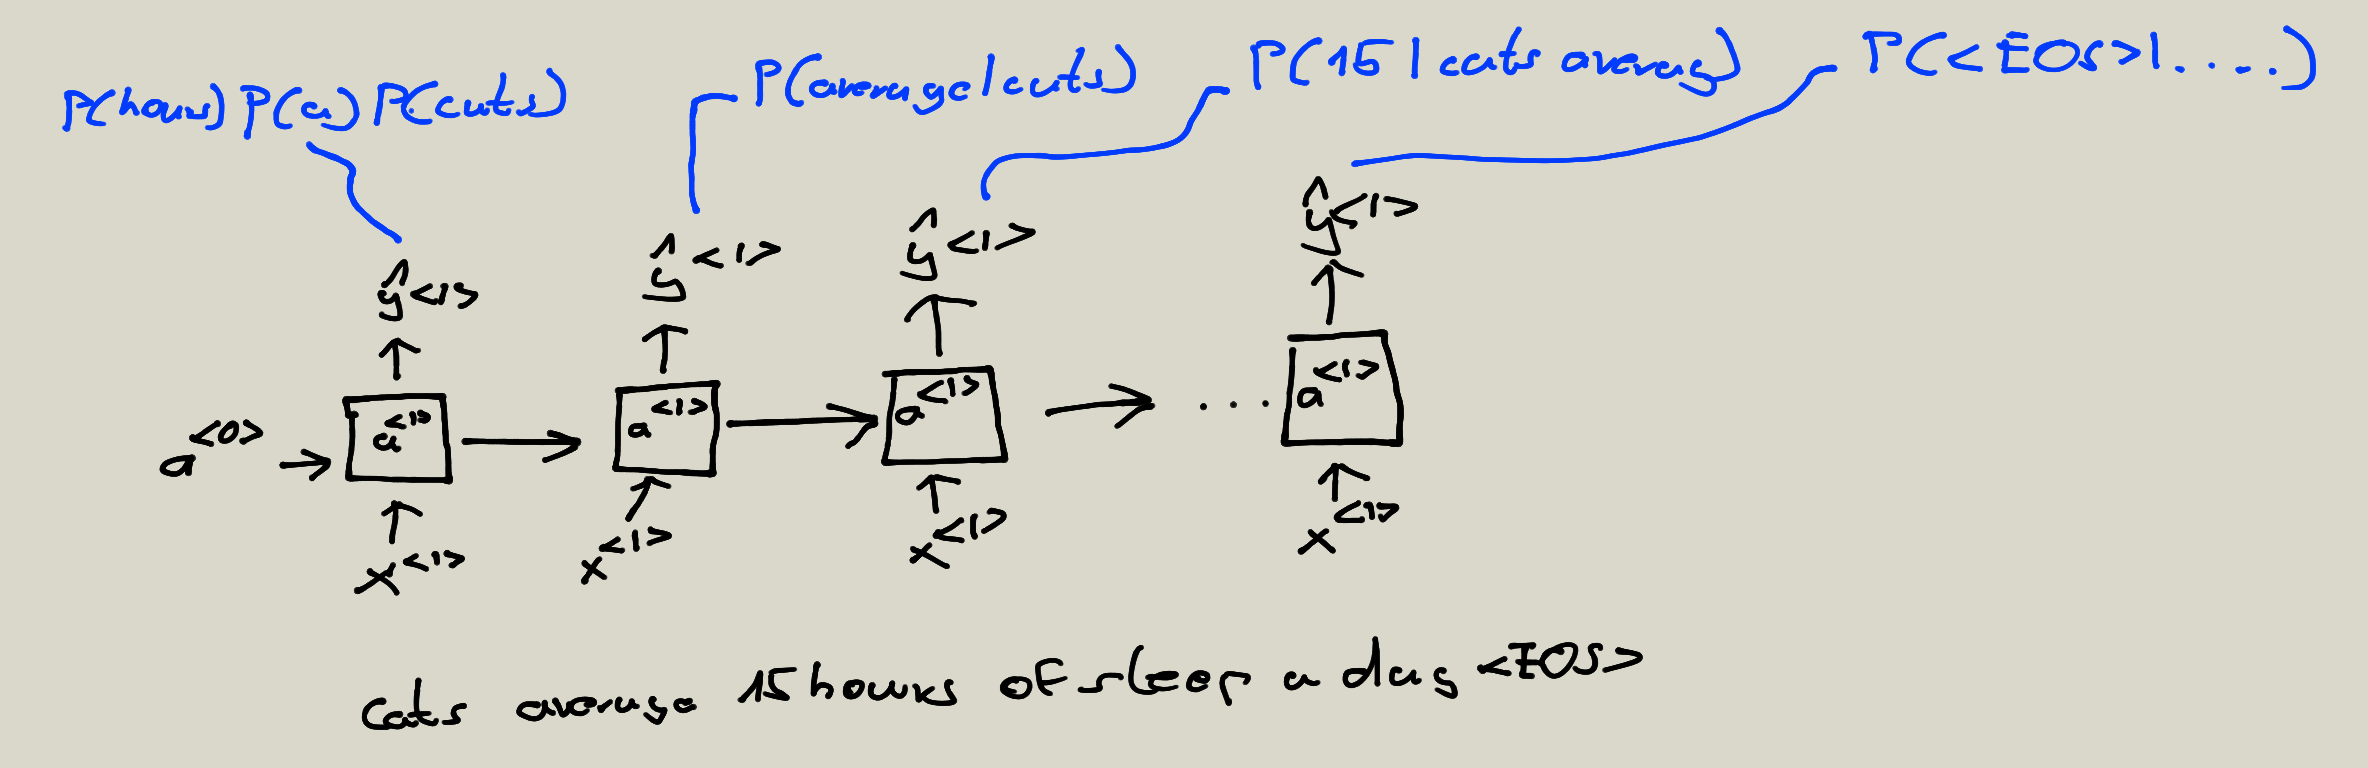 P(hours) P(a) P(cats)
P(average | cats)
P(15 | cats average)
P(<EOS> | . . . . )
ŷ<1>
ŷ<1>
ŷ<1>
ŷ<1>
a<0>
a<1>
a<1>
a<1>
. . .
a<1>
x<1>
x<1>
x<1>
x<1>
cats average 15 hours of sleep a day <EOS>